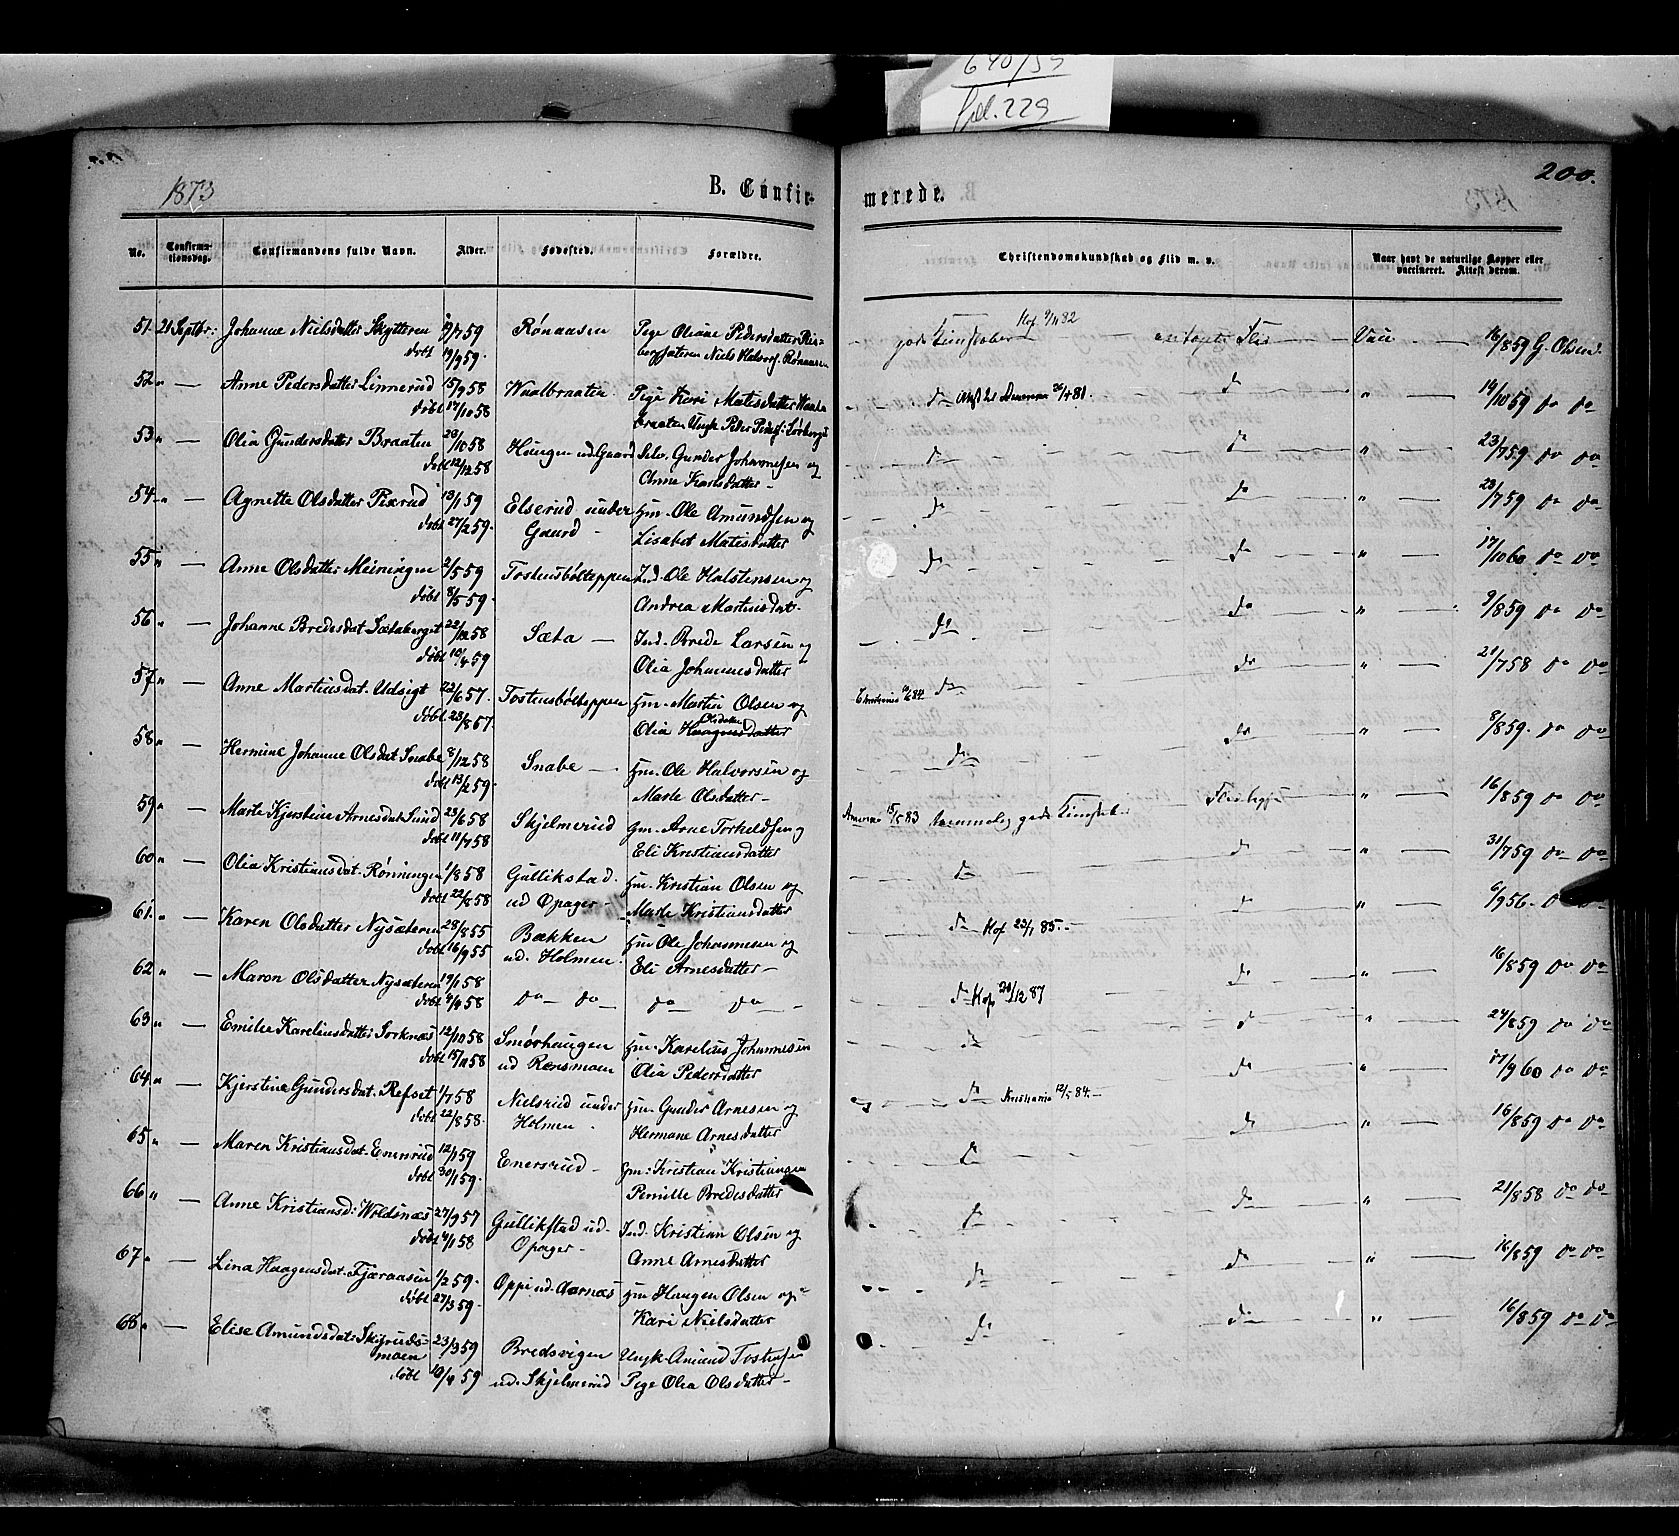 640/55
fol. 229
1873
B. Confir-
merede.
200.
No. Confirma-tionsdag. Confirmandens fulde Navn. Alder. Fødested. Forældre. Christendomskundskab og Flid m. v. Naar havt de naturlige Kopper eller vaccineret. Attest derom.
51. 21 Septbr: Johanne Nielsdatter Skytteren 9/7 59 Rønaasen Pige Oliane Pedersdatter Hof 9/11 82 gode Kundskaber Flid Vacc 16/8 59 G. Olsen.
døbt 19/9 59. Niels Halvors. Rønaasen
52 " — Anne Pedersdatter Linnerud 15/9 58 Waalbraaten Pige Kari Matisdatter Waal- do 26/4 81. do " 14/10 59 do do
døbt 17/10 58 braaten Ungk. Peder
53 " — Olia Gundersdatter Braaten 29/10 58 Haugen ud. Gaard Selv. Gunder Johannesen og do do " 23/7 59 do do
døbt 12/12 58 Anne Karlsdatter -
54 " — Agnette Olsdatter Pierud 13/1 59 Elserud under Hm. Ole Amundsen og do do " 23/7 59 do do
døbt 27/2 59. Gaard - Lisabet Matisdatter
55 " — Anne Olsdatter Meiningen 2/5 59 Tostensbølteppen Ind. Ole Halstensen og do do " 17/10 60 do do
døbt 8/5 59. Andrea Martinsdat.
56 " — Johanne Bredesdat. Sætaberget 22/12 58 Sæta — Ind. Brede Larsen og do do " 9/8 59 do do
døbt 10/4 59 Olia Johannesdatter
57 " — Anne Martinsdat. Udsigt 22/6 57. Tostensbølteppen Hm. Martin Olsen og Christiania 84. do do " 21/7 58 do do
døbt 23/8 57. Olia Haagensdatter Olsdatter
58 " — Hermine Johanne Olsdat Snabe 8/12 58 Snabe — Hm. Ole Halvorsen og do do " 8/8 59. do do
døbt 13/2 59. Marte Olsdatter -
59 " — Marte Kjerstine Arnesdat. Lund 23/6 58 Skjelmerud Hm. Arne Torkeldsen og Amerika 15/5 83 temmelig gode Kundskab. " 16/8 59 do do
døbt 11/7 58 Eli Kristiansdatter
60 " — Olia Kristiansdat. Rønningen 1/8 58 Gullikstad. Hm. Kristian Olsen og do do " 31/7 59 do do
døbt 22/8 58 ud Opager - Marte Kristiansdatter
61. " — Karen Olsdatter Nysæteren 28/8 55 Bækken Hm. Ole Johannesen og do Hof 23/1 85. - do " 6/9 56. do do
døbt 16/9 55 ud. Holmen. Eli Arnesdatter -
62 " — Maren Olsdatter Nysæteren 19/1 58 do - do - do do - do Hof 29/12 87 do " 16/8 59 do do
døbt 4/4 58
63 " — Emilie Kareliusdatter Torknæs 12/10 58 Smørhaugen Hm. Karelius Johannesen do do " 24/8 59 do do
døbt 15/11 58 ud Rensmoen Olia Pedersdatter
64 " — Kjerstine Gundersdat. Refset 1/7 58 Nielsrud under Hm. Gunder Arnesen og do Kristiania 12/5 84. - do " 17/9 60 do do
døbt 22/8 58. Holmen. Hermane Arnesdatter
65 " — Maren Kristiansdat. Enersrud 12/1 59 Enersrud - Hm. Kristian Kristiansen do do " 16/8 59 do do
døbt 30/1 59. Pernille Bredesdatter
66 " — Anne Kristiansd: Woldsnæs 27/9 57 Gullikstad ud. Ind. Kristian Olsen og do do " 21/8 58 do do
døbt 4/1 58 Opager - Anne Arnesdatter
67 " — Lina Haagensdat. Fjæraasen 1/2 59. Oppi ud. Aarnæs Hm Haagen Olsen og do do " 16/8 59 do do
døbt 27/3 59. Kari Nielsdatter
68 " — Elise Amundsdat: Skyruds- 23/3 59 Bredsvigen Ungk. Amund Tostensen do do " 16/8 59 do do
moen døbt 10/4 59 ud. Skjelmerud Pige Olea Olsdatter -